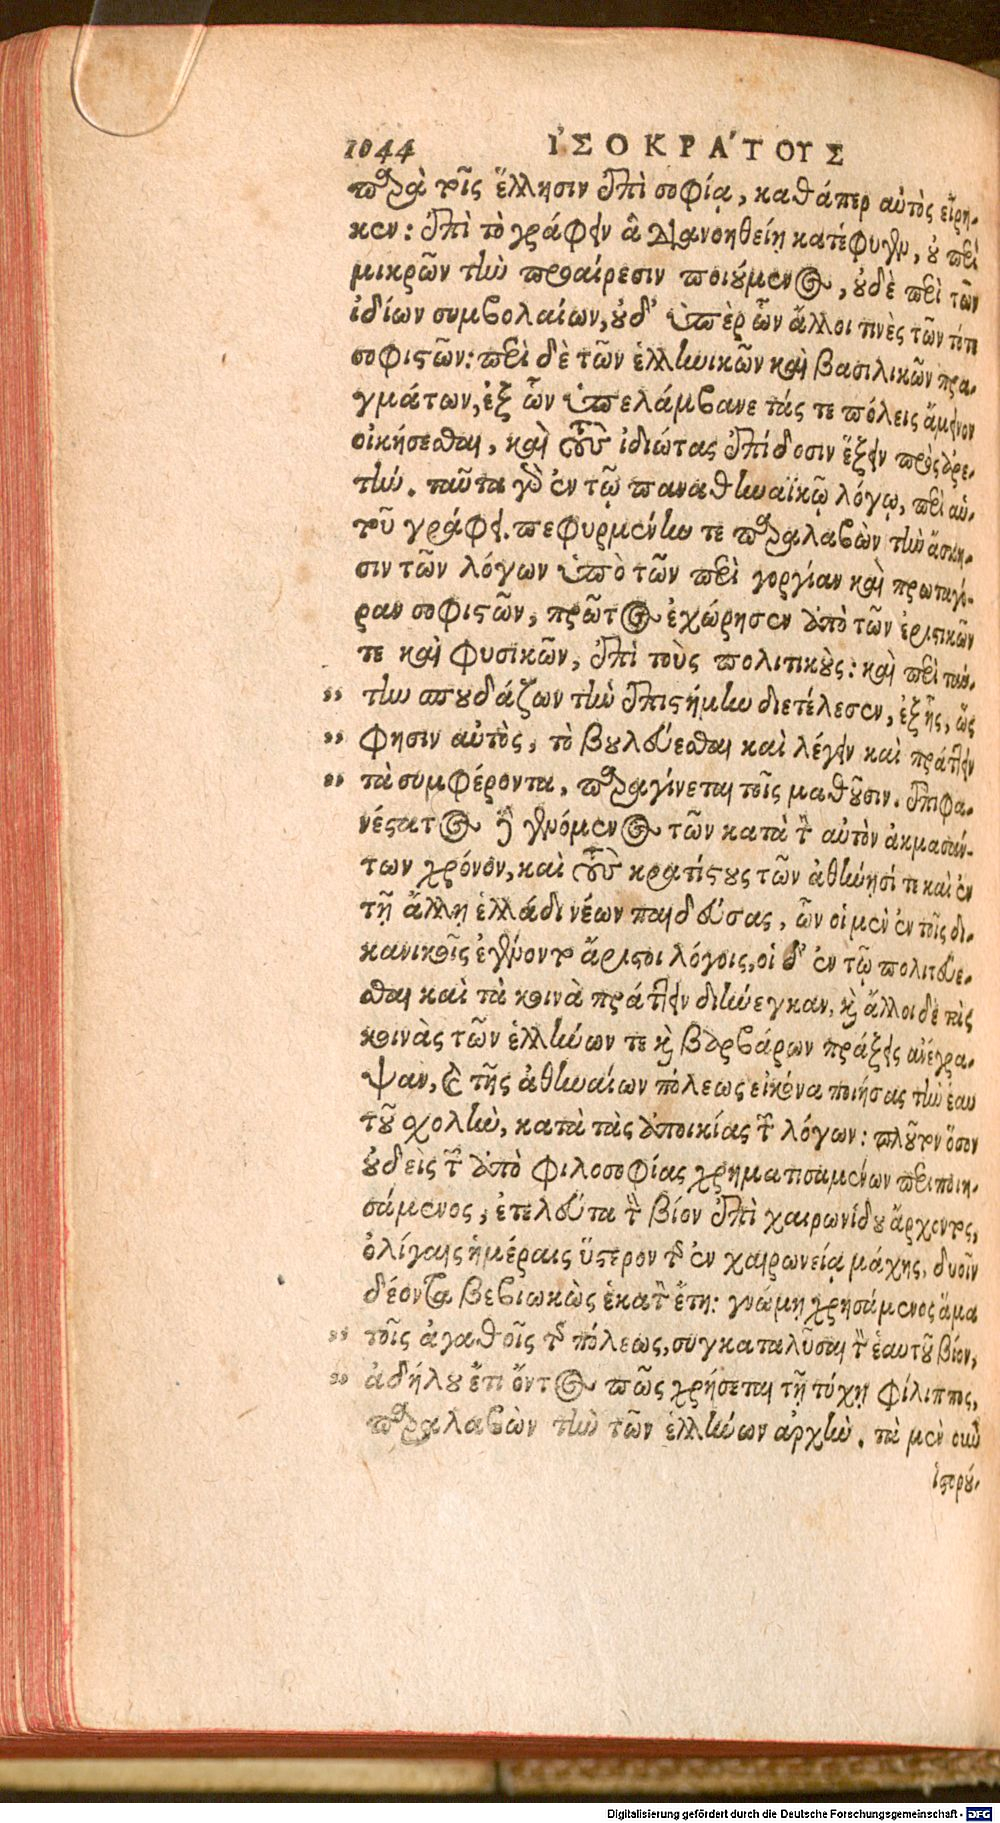 1044 ἸΣΟΚΡΆΤΟΥΣ
παρὰ τοῖς ἕλλησιν ἐπὶ σοφίᾳ, καθάπερ αὐτὸς εἴρη-
κεν: ἐπὶ τὸ γράφειν ἃ διανοηθείη κατέφυγεν, οὐ περὶ
μικρῶν τὴν προαίρεσιν ποιούμενος, οὐδὲ περὶ τῶν
ἰδίων συμβολαίων, οὐδ' ὑπὲρ ὧν ἄλλοι τινὲς τῶν τότε
σοφιστῶν: περὶ δὲ τῶν ἑλληνικῶν καὶ βασιλικῶν πρα-
γμάτων, ἐξ ὧν ὑπελάμβανε τάς τε πόλεις ἄμεινον
οἰκήσεσθαι, καὶ τοὺς ἰδιώτας ἐπίδοσιν ἕξειν πρὸς ἀρε-
τήν. ταῦτα γὰρ ἐν τῷ παναθηναϊκῷ λόγῳ, περὶ αὑ-
τοῦ γράφει. πεφυρμένην τε παραλαβὼν τὴν ἄσκη-
σιν τῶν λόγων ὑπὸ τῶν περὶ γοργίαν καὶ πρωταγό-
ραν σοφιστῶν, πρῶτος ἐχώρησεν ἀπὸ τῶν ἐριστικῶν
τε καὶ φυσικῶν, ἐπὶ τοὺς πολιτικούς: καὶ περὶ ταύ-
" την σπουδάζων τὴν ἐπιστήμην διετέλεσεν, ἐξ ἧς, ὥς
" φησιν αὐτὸς, τὸ βουλεύεσθαι καὶ λέγειν καὶ πράττειν
" τὰ συμφέροντα, παραγίνεται τοῖς μαθοῦσιν. ἐπιφα-
νέστατος δὲ γενόμενος τῶν κατὰ τὸν αὐτὸν ἀκμασάν-
των χρόνον, καὶ τοὺς κρατίστους τῶν ἀθήνῃσί τε καὶ ἐν
τῇ ἄλλῃ ἑλλάδι νέων παιδεύσας, ὧν οἱ μὲν ἐν τοῖς δι-
κανικοῖς ἐγένοντο ἄριστοι λόγοις, οἱ δ' ἐν τῷ πολιτεύε-
σθαι καὶ τὰ κοινὰ πράττειν διήνεγκαν, καὶ ἄλλοι δὲ τὰς
κοινὰς τῶν ἑλλήνων τε καὶ βαρβάρων πράξεις ἀνέγρα-
ψαν, καὶ τῆς ἀθηναίων πόλεως εἰκόνα ποιήσας τὴν ἑαυ
τοῦ σχολὴν, κατὰ τὰς ἀποικίας τῶν λόγων: πλοῦτον ὅσον
οὐδεὶς τῶν ἀπὸ φιλοσοφίας χρηματισαμένων περιποιη-
σάμενος, ἐτελεύτα τὸν βίον ἐπὶ χαιρωνίδου ἄρχοντος,
ὀλίγαις ἡμέραις ὕστερον τῆς ἐν χαιρωνείᾳ μάχης, δυοῖν
δέοντα βεβιωκὼς ἑκατὸν ἔτη: γνώμῃ χρησάμενος ἅμα
" τοῖς ἀγαθοῖς τῆς πόλεως, συγκαταλῦσαι τὸν ἑαυτοῦ βίον,
" ἀδήλου ἔτι ὄντος πῶς χρήσεται τῇ τύχῃ φίλιππος,
παραλαβὼν τὴν τῶν ἑλλήνων ἀρχήν. τὰ μὲν οὖν
ἱστορού-
Digitalisierung gefördert durch die Deutsche Forschungsgemeinschaft - DFG